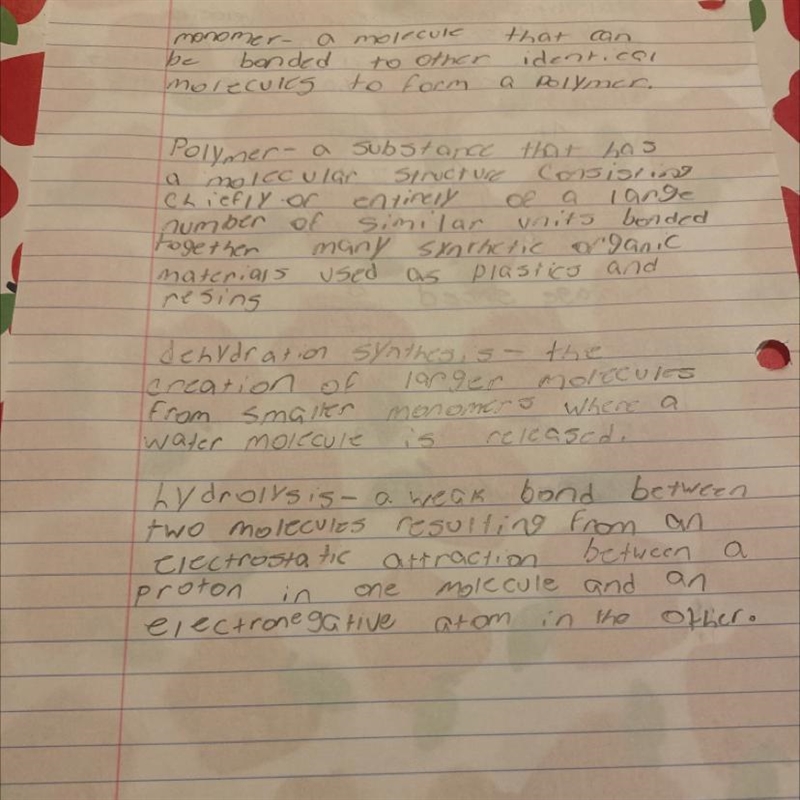 monomer- a molecule that can
be bonded to other identical
molecules to form a polymer.
Polymer- a substance that has
a molecular structure consisting
chiefly or entirely of a large
number of similar units bonded
together many synthetic organic
materials used as plastics and
resins
dehydration synthesis- the
creation of larger molecules
from smaller monomers where a
water molecule is released.
hydrolysis- a weak bond between
two molecules resulting from an
electrostatic attraction between a
proton in one molecule and an
electronegative atom in the other.